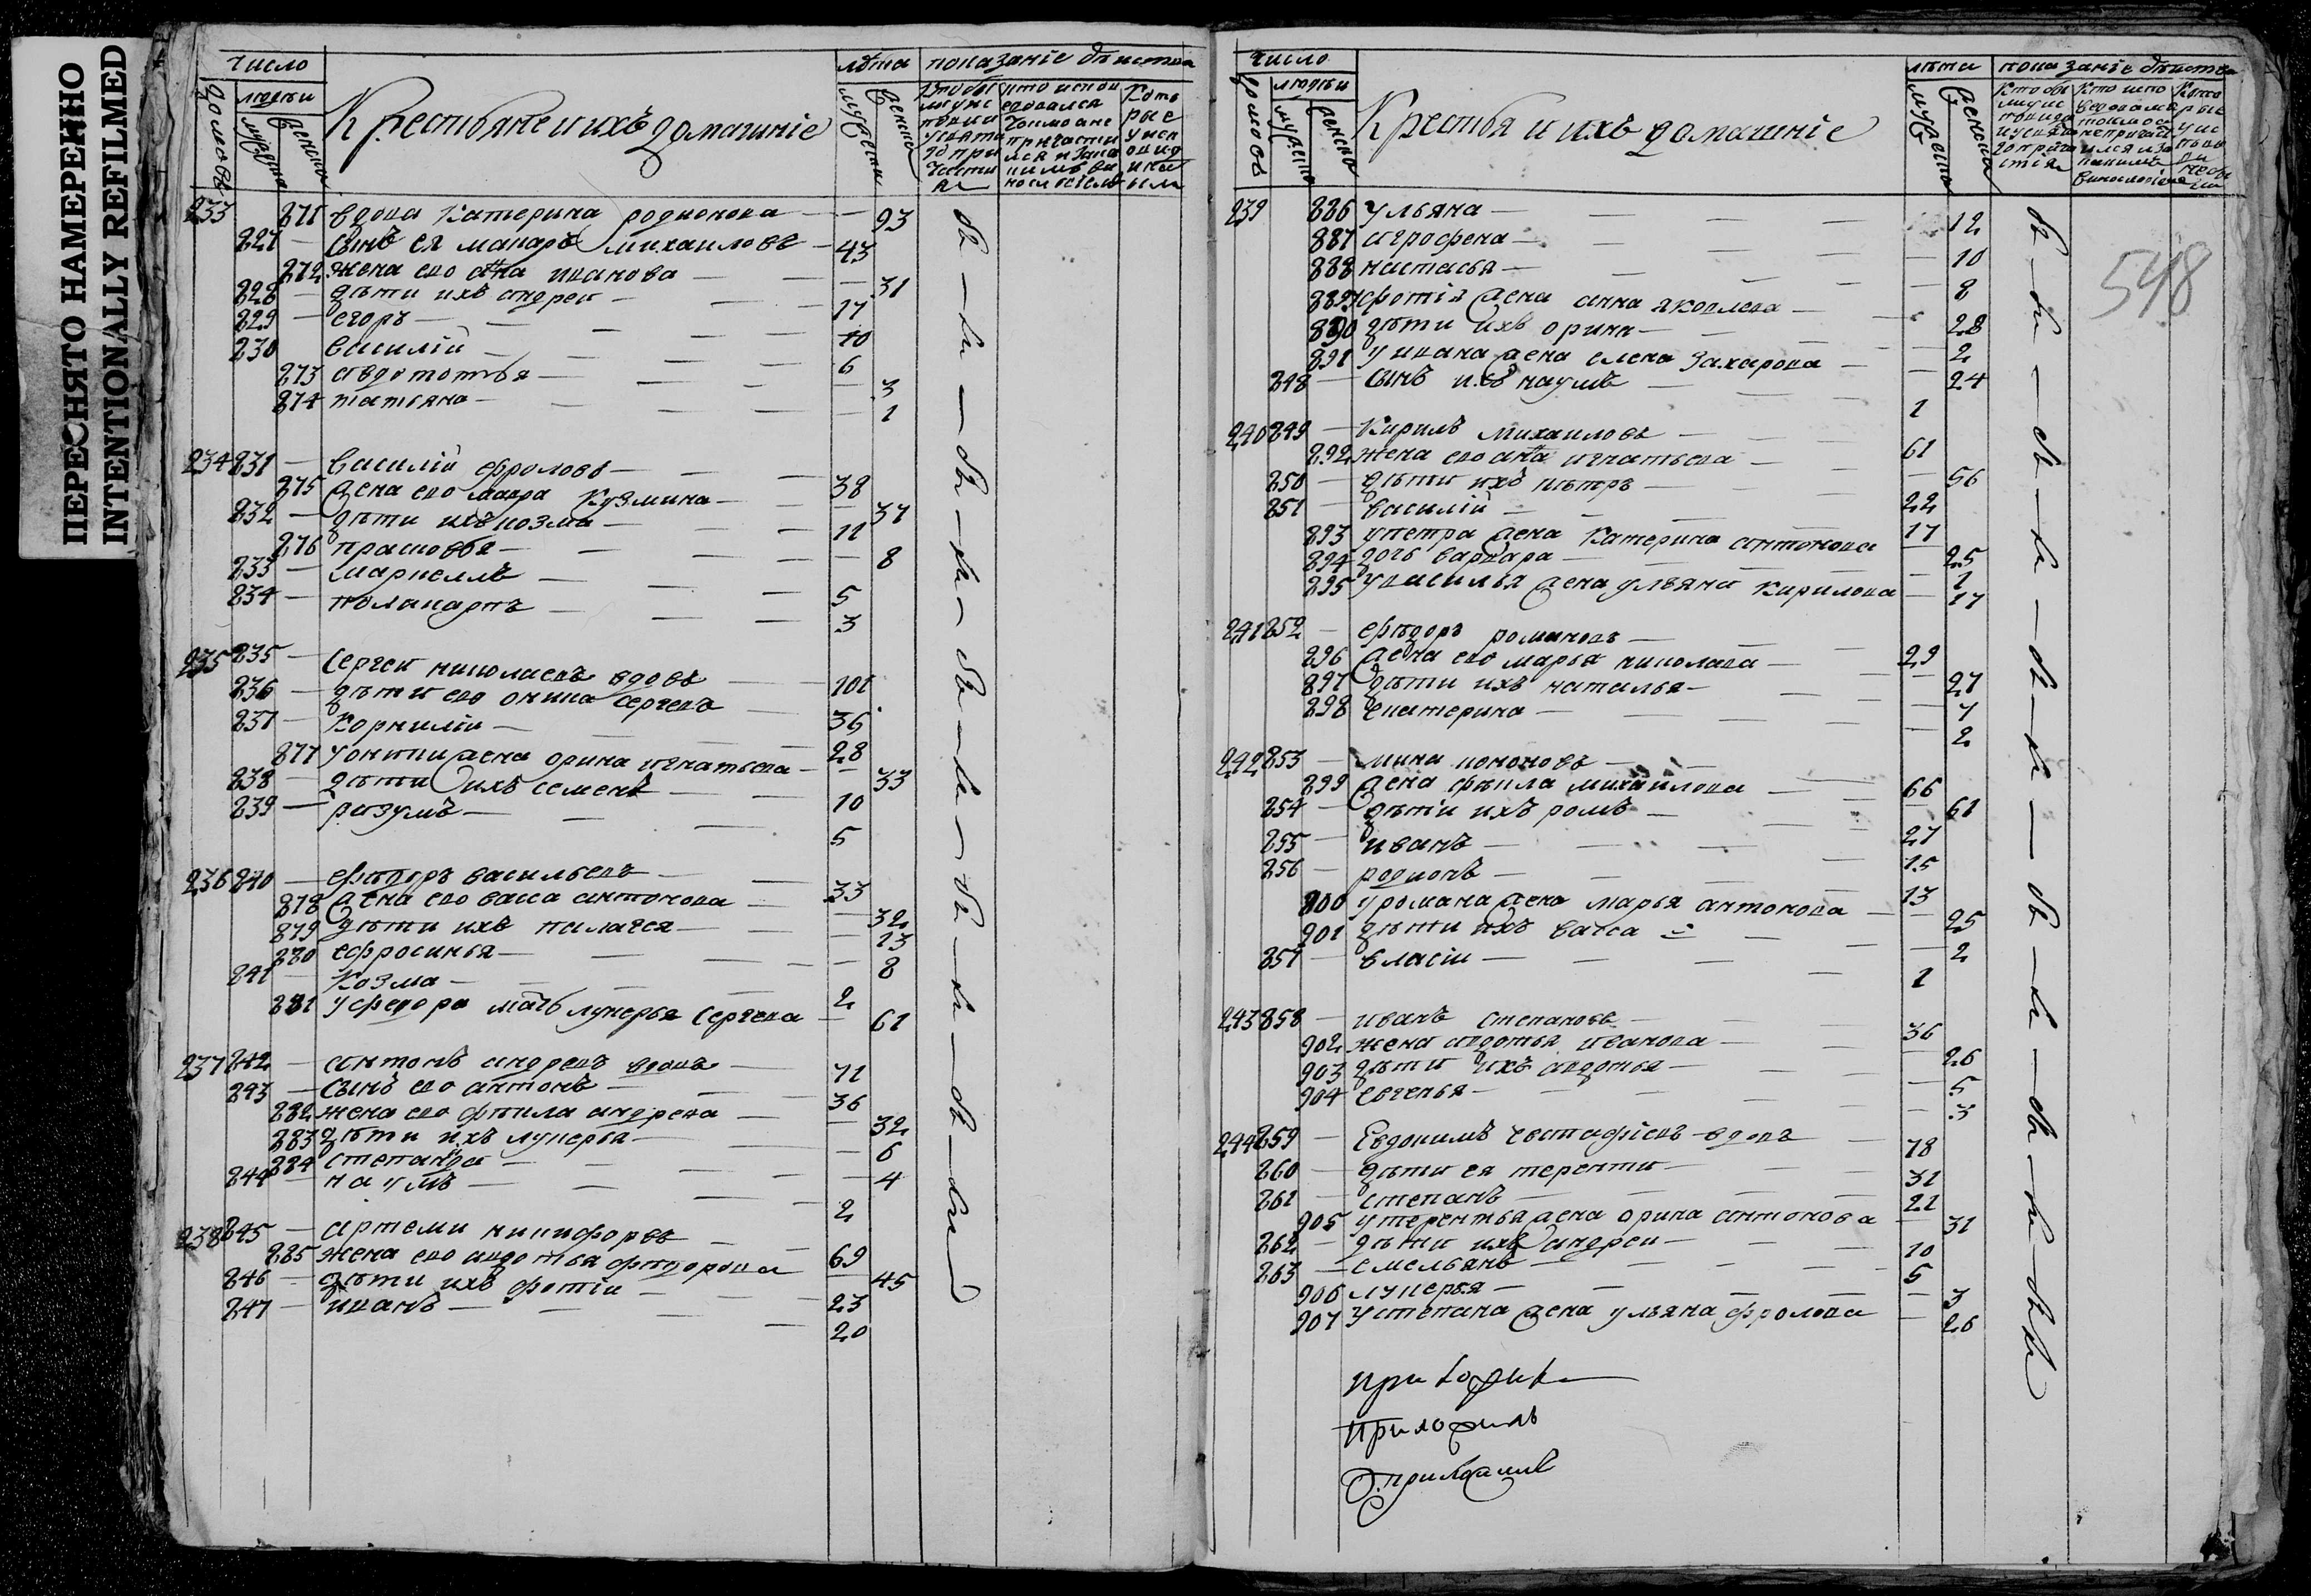 ПЕРЕСНЯТО НАМЕРЕННО
INTENTIONALLY REFILMED
число
домовъ
людеи
мужеска
женска
Крестьяне и ихъ домашніе
лѣта
мужеска
женска
показаніе дѣиства
233 871 вдова Катерина родионова — 93
827 — сынъ ея макаръ михаиловъ — 43
872 жена его анна иванова — 31
828 — дѣти ихъ андреи — 17
829 — егоръ — 10
830 василіи — 6
873 авдототья — 3
874 татьяна — 1
234 831 — василіи фроловъ — 38
875 жена его мавра Кузмина — 37
832 — дѣти ихъ козма — 11
876 прасковья — 8
833 — маркеллъ — 5
834 — поликарпъ — 3
235 835 — Сергеи николаевъ вдовъ — 101
836 — дѣти его оника Сергеевъ — 36
837 — Корнилїи — 28
877 у оники жена орина игнатьева — 33
838 — дѣти ихъ семенъ — 10
839 — разумъ — 5
236 840 — фѣдоръ васильевъ — 33
878 жена его васса антонова — 32
879 дѣти ихъ пилагея — 13
880 ефросинья — 8
841 — Козма — 2
881 у федора мать лукерья Сергеева — 61
237 842 — антонъ андреевъ вдовъ — 71
843 — сынъ его антонъ — 36
882 жена его фѣкла андреева — 32
883 дѣти ихъ лукерья — 6
884 степанида — 4
844 — наумъ — 2
238 845 — артеми никифоръ — 69
885 жена его авдотья фѣдорова — 45
846 — дѣти ихъ фотіи — 23
847 — иванъ — 20
число
домовъ
людеи
мужеска
женска
Крестья и ихъ домашніе
лѣта
мужеска
женска
показанъе дѣиства
548
239 886 ульяна — 12
887 агрофена — 10
888 настасья — 8
889 у фотія жена анна яковлева — 28
890 дѣти ихъ орина — 2
891 у ивана жена елена Захарова — 24
848 — сынъ ихъ наумъ — 1
240 849 — Кирилъ михаиловъ — 61
892 жена его анна игнатьева — 56
850 — дѣти ихъ пѣтръ — 22
851 — василіи — 17
893 у петра жена Катерина антонова — 25
894 дочь варвара — 1
895 у василья жена ульяна Кирилова — 17
241 852 — фѣдоръ романовъ — 29
896 жена его марья николаева — 27
897 дѣти ихъ наталья — 7
898 екатерина — 2
242 853 — мина кононовъ — 66
899 жена фѣкла михаилова — 61
854 — дѣтіи ихъ ромъ — 27
855 — иванъ — 15
856 — родионъ — 13
900 у романа жена марья антонова — 25
901 дѣти ихъ васса — 2
857 — власіи — 1
243 858 — иванъ степановъ — 36
902 жена авдотья иванова — 26
903 дѣти ихъ авдотья — 5
904 евгенья — 3
244 859 — Евдокимъ евстафіевъ вдовъ — 78
860 — дѣти ея теренти — 31
861 — степанъ — 21
905 у терентья жена орина антонова — 31
862 — дѣти ихъ андреи — 10
863 — емельянъ — 5
906 лукерья — 3
907 у степана жена ульяна фролова — 26